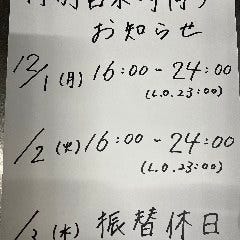 お知らせ
12/1 (月) 16:00-24:00
(L.O.23:00)
/2 (火) 16:00-24:00
(L.O.23:00)
/3 (水) 振替休日